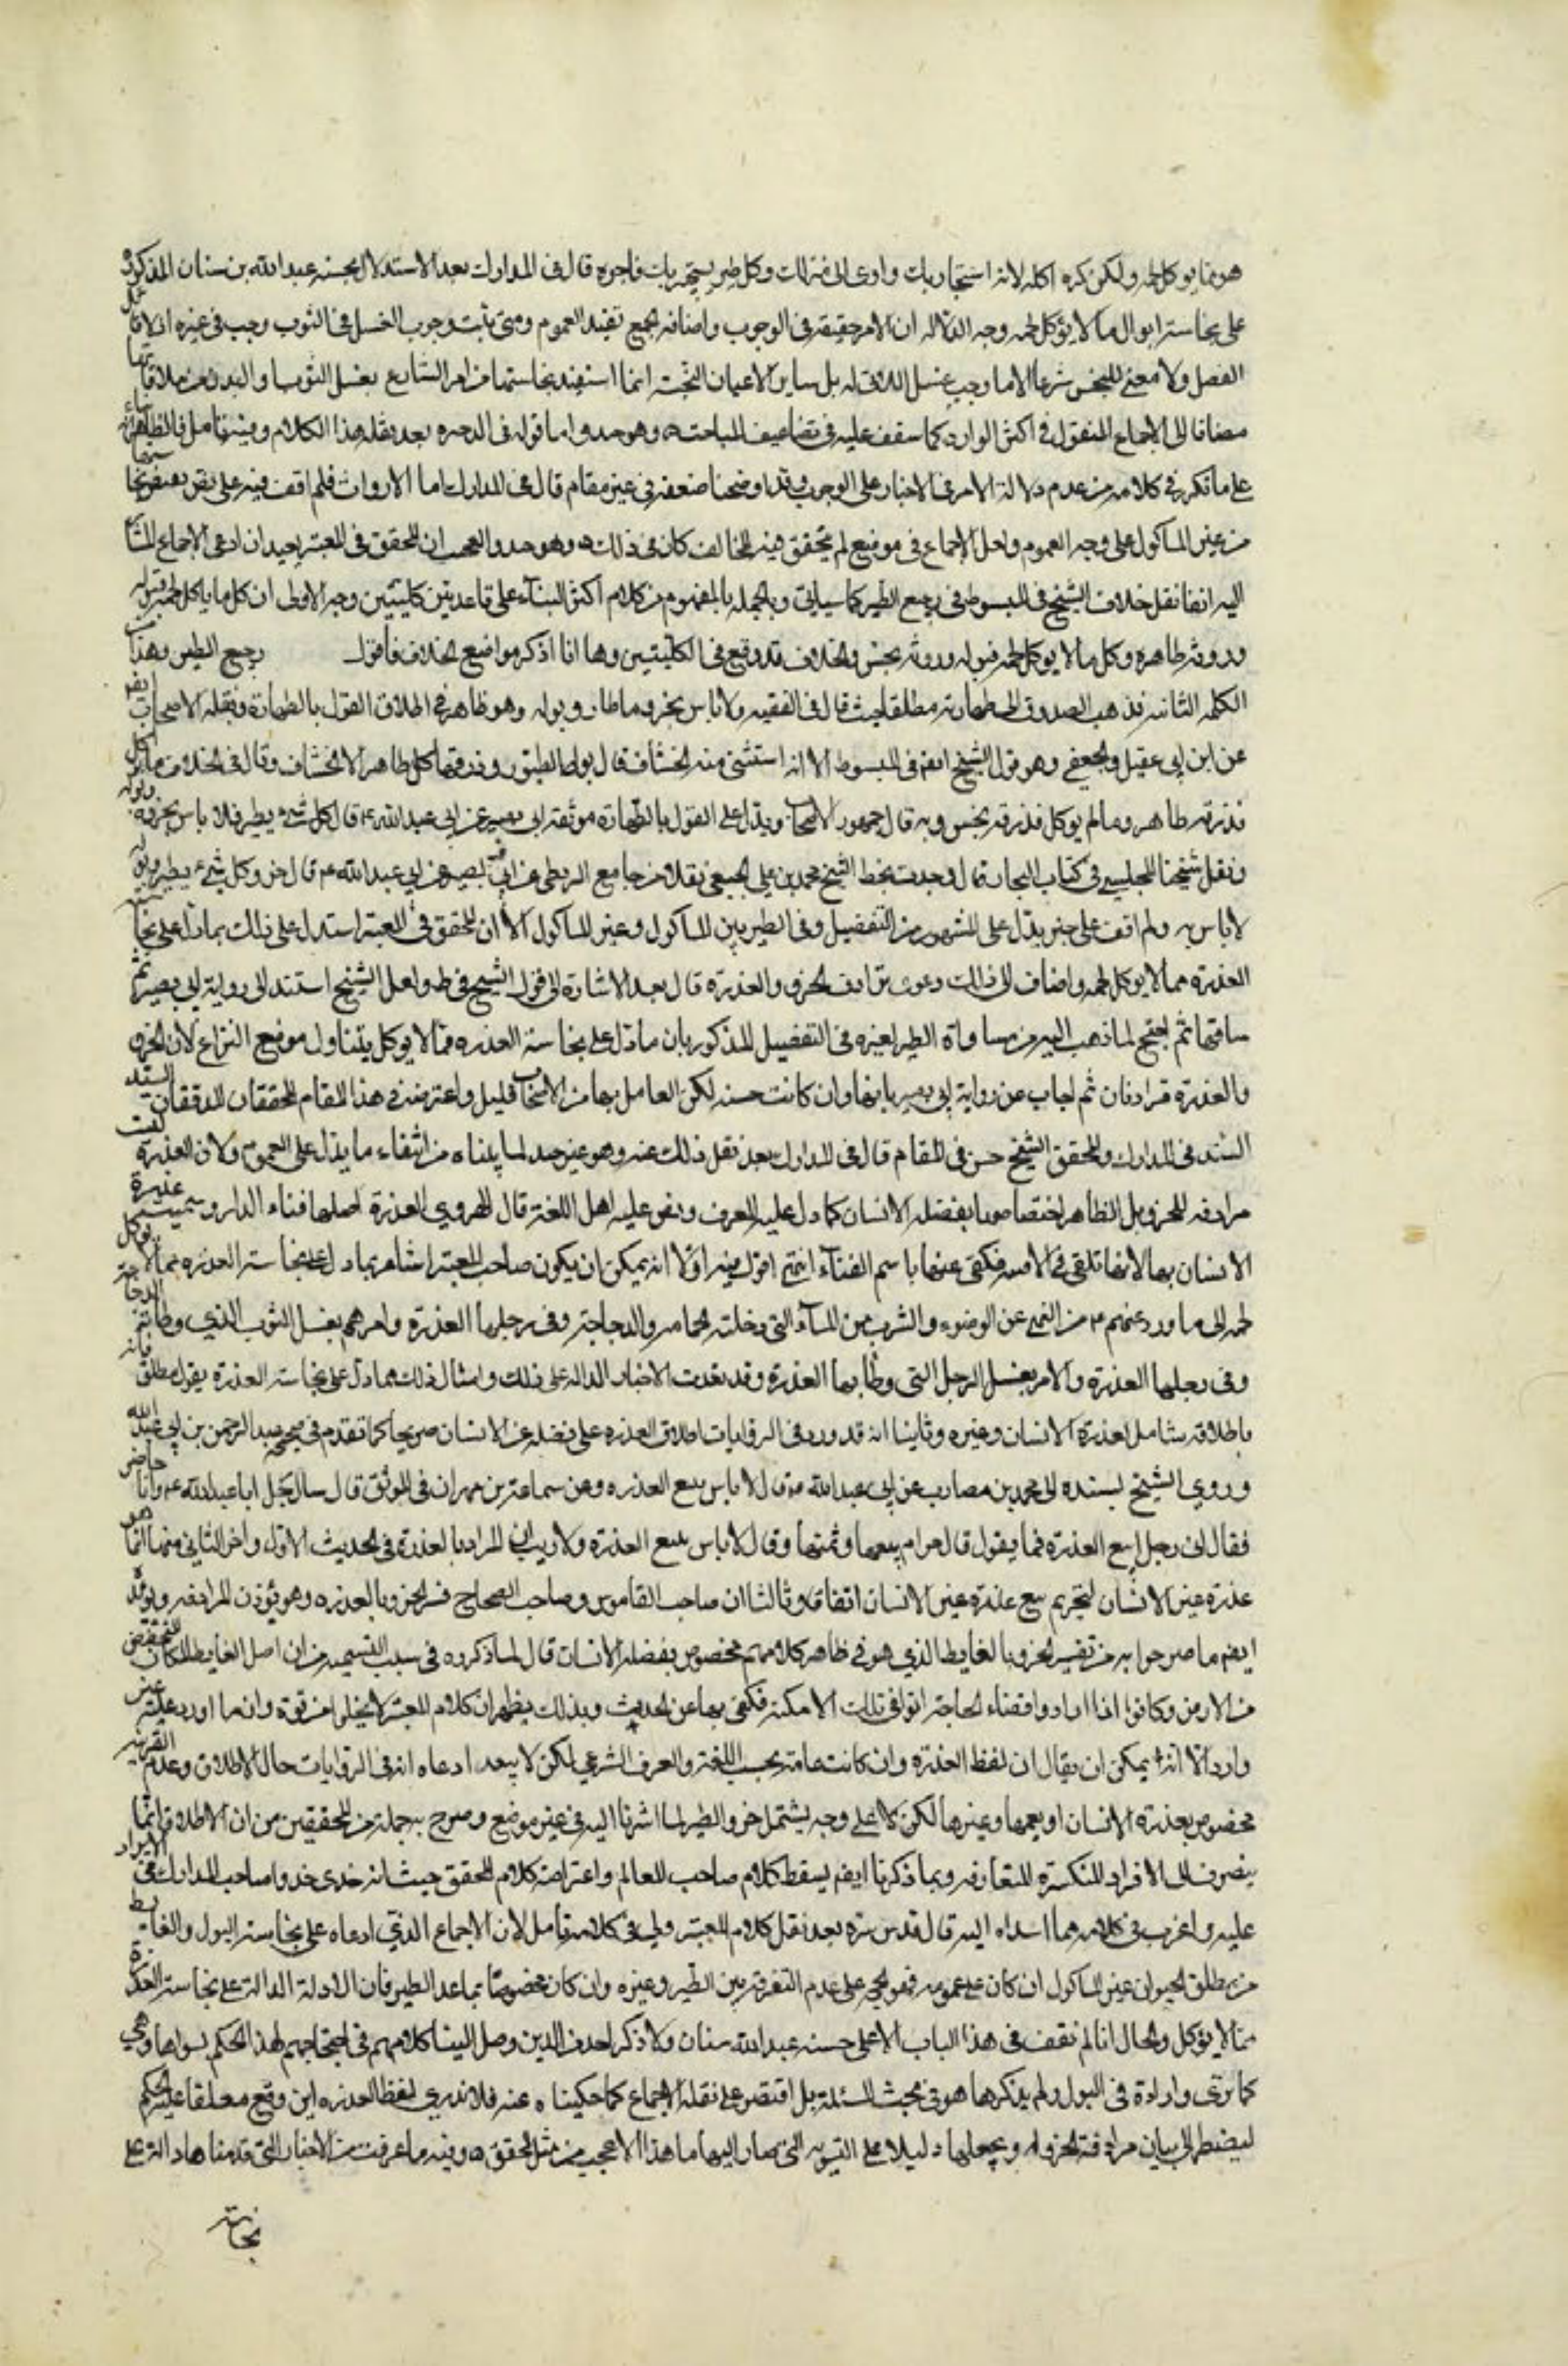 هو مما يوكل لحمه ولكن كره اكله لانه استجار بك واوى الى منزلك وكل طير يستجير بك فاجره قال في المدارك بعد الاستدلال بحسنه عبد الله بن سنان المذكوره
على نجاسة ابوال ما لا يؤكل لحمه وجه الدلاله ان الامر حقيقه في الوجوب واضافه الجمع تفيد العموم ومتى ثبت وجوب الغسل في الثوب وجب في غيره اذ لا قائل
الفصل ولا معنى للنجس شرعا الا ما وجب غسل الملاقى له بل ساير الاعيان النجسة انما استفيد نجاستها من امر الشارع بغسل الثوب او البدن من ملاقاتها
مضافا الى الاجماع المنقول في اكثر الموارد كما سقف عليه في تضاعيف المباحث وهو جيد واما قوله في الذخيره بعد نقله هذا الكلام وفيه تامل فالظاهر انه بناء
على ما تكرر في كلامه من عدم دلالة الامر في الاخبار على الوجوب وقد اوضحنا ضعفه في غير مقام قال في المدارك اما الارواث فلم اقف فيه على نص يقتضي نجاستها
من غير الماكول على وجه العموم ولعل الاجماع في موضع لم يتحقق فيه المخالف كاف في ذلك وهو جيد والعجب ان المحقق في المعتبر بعيد ان ادعى الاجماع المشار
اليه انفا نقل خلاف الشيخ في المبسوط في رجيع الطير كما سياتي وبالجمله فالمفهوم من كلام اكثر البناء على قاعدتين كليتين وجه الاولى ان كل ما يؤكل لحمه فبوله
وروثه طاهره وكل ما لا يوكل لحمه فبوله وروثه نجس والخلاف قد وقع في الكليتين وها انا اذكر مواضع الخلاف فاقول رجيع الطير وهذا من
الكليه الثانيه فذهب الصدوق الى طهارته مطلقا حيث قال في الفقيه ولا باس بخرو ما طار وبوله وهو ظاهر في اطلاق القول بالطهارة ونقله الاصحاب ايضا
عن ابن ابي عقيل والجعفي وهو قول الشيخ ايضا في المبسوط الا انه استثنى منه الخشاف قال بول الطيور وذرقها كله طاهر الا الخشاف وقال في الخلاف ما اكل
فذرقه طاهر وما لم يوكل فذرقه نجس وبه قال جمهور الاصحاب ويدل على القول بالطهارة موثقه ابي بصير عن ابي عبد الله ع قال كل شيء يطير فلا باس بخرئه وبوله
ونقل شيخنا المجلسي في كتاب البحار قال وجدت بخط الشيخ محمد بن علي الجبعي نقلا من جامع البزنطي عن ابي بصير عن ابي عبد الله ع قال خرو كل شيء يطير وبوله
لا باس به ولم اقف على خبر يدل على المشهور من التفصيل وفي الطير بين الماكول وغير الماكول الا ان المحقق في المعتبر استدل على ذلك بما دل على نجاسة
العذرة مما لا يوكل لحمه واضاف الى ذلك دعوى ترادف الخرو والعذرة قال بعد الاشارة الى قول الشيخ في ط ولعل الشيخ استند الى رواية ابي بصير ثم
ساقها ثم احتج لما ذهب اليه من مساواة الطير لغيره في التفصيل المذكور بان ما دل على نجاسة العذره مما لا يوكل يتناول موضع النزاع لان الخرو
والعذرة مترادفان ثم اجاب عن رواية ابي بصير بانها وان كانت حسنه لكن العامل بها من الاصحاب قليل واعترضه في هذا المقام المحققان المدققان السيد
السند في المدارك والمحقق الشيخ حسن في المقام قال في المدارك بعد نقل ذلك عنه وهو غير جيد لما بيناه من انتفاء ما يدل على العموم ولان العذرة ليست
مرادفه للخرو بل الظاهر اختصاصها بفضله الانسان كما دل عليه العرف ونص عليه اهل اللغة قال الهروي العذرة اصلها فناء الدار وسميت عذرة
الانسان بها لانها تلقى في الافنيه فكنى عنها باسم الفناء انتهى اقول فيه اولا انه يمكن ان يكون صاحب المعتبر اشار بما دل على نجاسة العذره مما لا يوكل
لحمه الى ما ورد عنهم ع من النهي عن الوضوء والشرب من الماء التي دخلته الحمامه والدجاجة وفي رجلها العذرة وامرهم بغسل الثوب الذي وطأته الدجاجة
وفي رجلها العذرة والامر بغسل الرجل التي وطأ بها العذرة وقد تقدمت الاخبار الداله على ذلك وامثال ذلك مما دل على نجاسة العذرة بقول مطلق فانه
باطلاقه شامل لعذرة الانسان وغيره وثانيا انه قد ورد في الروايات اطلاق العذره على فضله غير الانسان صريحا كما تقدم في صحيحه عبد الرحمن بن ابي عبد الله
وروى الشيخ بسنده الى محمد بن مصارب عن ابي عبد الله ع قال لا باس ببيع العذره وعن سماعة بن مهران في الموثق قال سال رجل ابا عبد الله ع وانا حاضر
فقال اني رجل ابيع العذرة فما يقول قال حرام بيعها وثمنها وقال لا باس ببيع العذرة ولا ريب ان المراد بالعذرة في الحديث الاول واخر الثاني منهما انما هو
عذرة غير الانسان لتحريم بيع عذرة غير الانسان اتفاقا وثالثا ان صاحب القاموس وصاحب الصحاح فسر الخرو بالعذره وهو يؤذن المرادفه ويؤيد
ايضا ما صرحوا به من تفسير الخرو بالغايط الذي هو في ظاهر كلامهم مخصوص بفضله الانسان قال لما ذكروه في سبب التسميه من ان اصل الغايط المكان المنخفض
من الارض وكانوا اذا ارادوا قضاء الحاجة اتوا في تلك الامكنه فكنى بها عن الحديث وبذلك يظهر ان كلام المعتبر لا يخلو من قوة وان ما اورد عليه غير
وارد الا انه يمكن ان يقال ان لفظ العذرة وان كانت عامه بحسب اللغة والعرف الشرعي لكن لا يبعد ادعاه انه في الروايات حال الاطلاق وعدم القرينه
مخصوص بعذرة الانسان او يعمها وغيرها لكن لا على وجه يشتمل خرو الطير لما اشرنا اليه في غير موضع وصرح به جملة من المحققين من ان الاطلاق انما
ينصرف الى الافراد المتكثرة المتعارفه وبما ذكرنا ايضا يسقط كلام صاحب المعالم واعتراضه كلام المحقق حيث انه حذى حذو صاحب المدارك في الايراد
عليه واغرب في كلامه مما اسداه اليه قال قدس سره بعد نقل كلام المعتبر ولي في كلامه تامل لان الاجماع الذي ادعاه على نجاسة البول والغايط
من مطلق الحيوان غير الماكول ان كان على عمومه فهو الحجه على عدم التفرقه بين الطير وغيره وان كان مخصوصا بما عدا الطير فان الادلة الدالة على نجاسة العذرة
مما لا يؤكل والحال انا لم نقف في هذا الباب الا على حسنه عبد الله سنان ولا ذكر احد من الذين وصل الينا كلامهم في احتجاجهم لهذا الحكم سواها وهي
كما ترى وارادة في البول ولم يذكرها هو في مبحث المسئلة بل اقتصر على نقله الاجماع كما حكيناه عنه فلا ندري لفظ العذره اين وقع معلقا عليه الحكم
ليضطر الى بيان مرادفة الخرو له ويجعلها دليلا على التسويه التي صار اليها ما هذا الا عجيب من مثل المحقق وفيه ما عرفت من الاخبار التي قدمناها دالة على
نجاسة